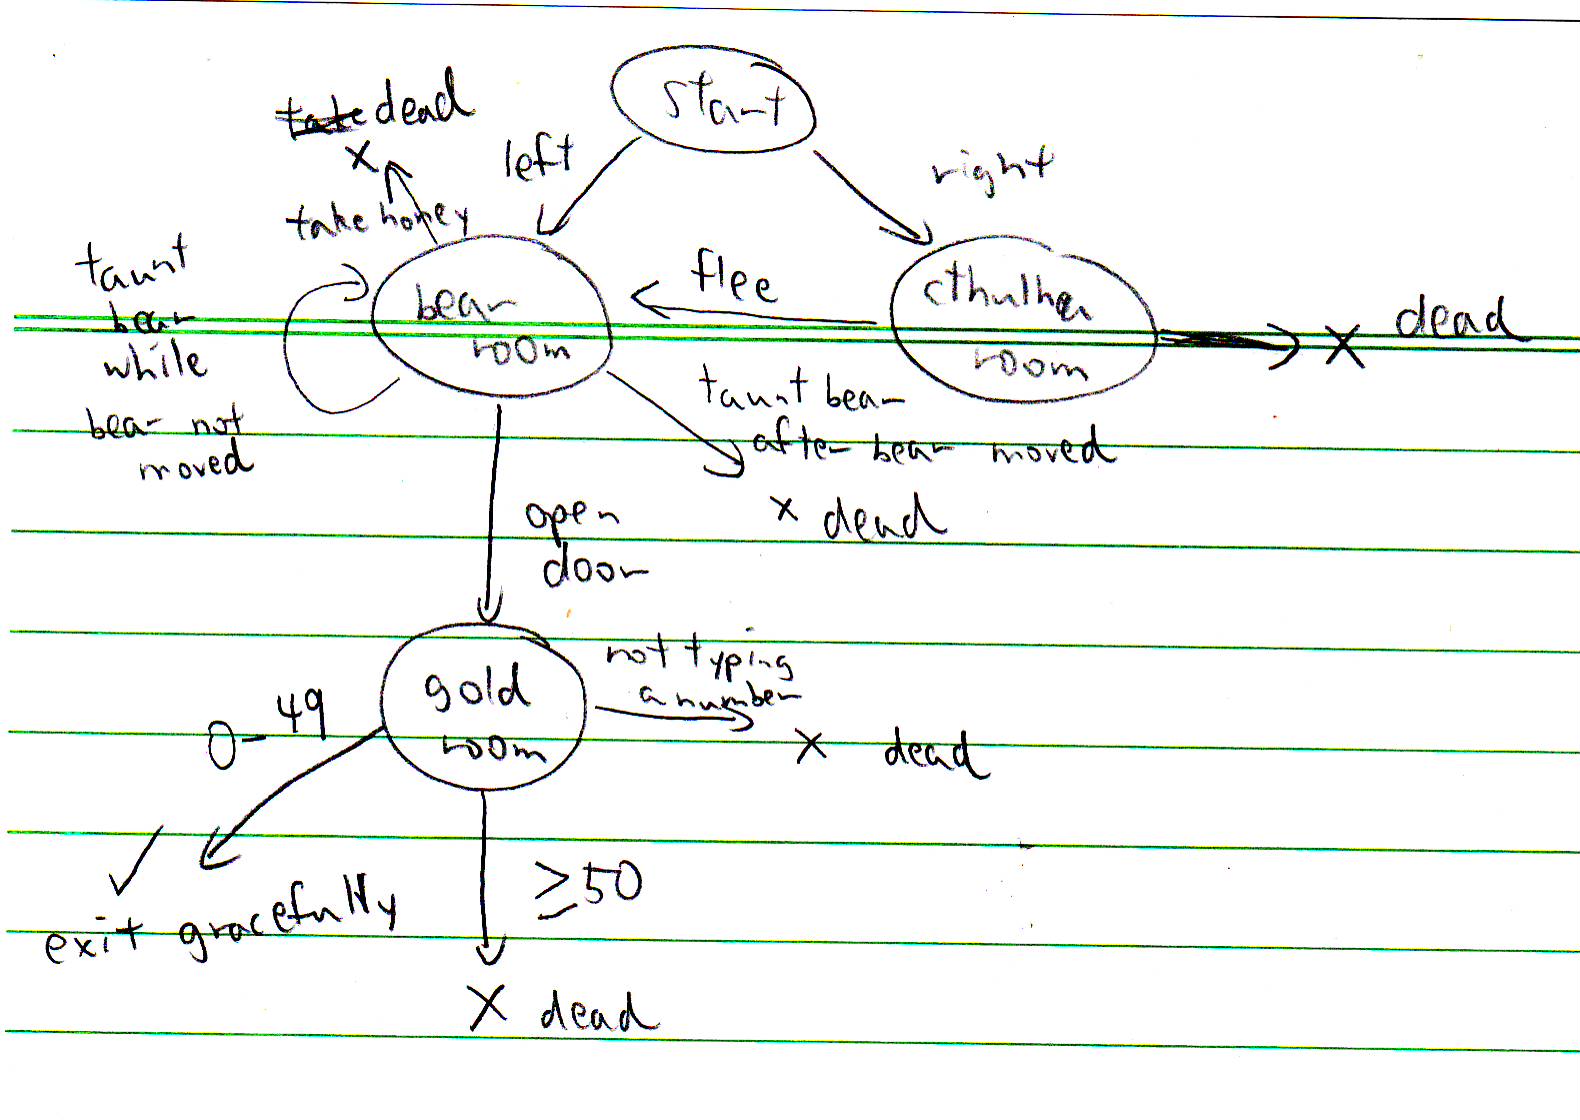 start
take dead
X
left
right
take honey
taunt
bear
while
bear not
moved
bear
room
flee
cthulhu
room
X dead
taunt bear
after bear moved
X dead
open
door
gold
room
not typing
a number
X dead
0-49
exit gracefully
≥50
X dead